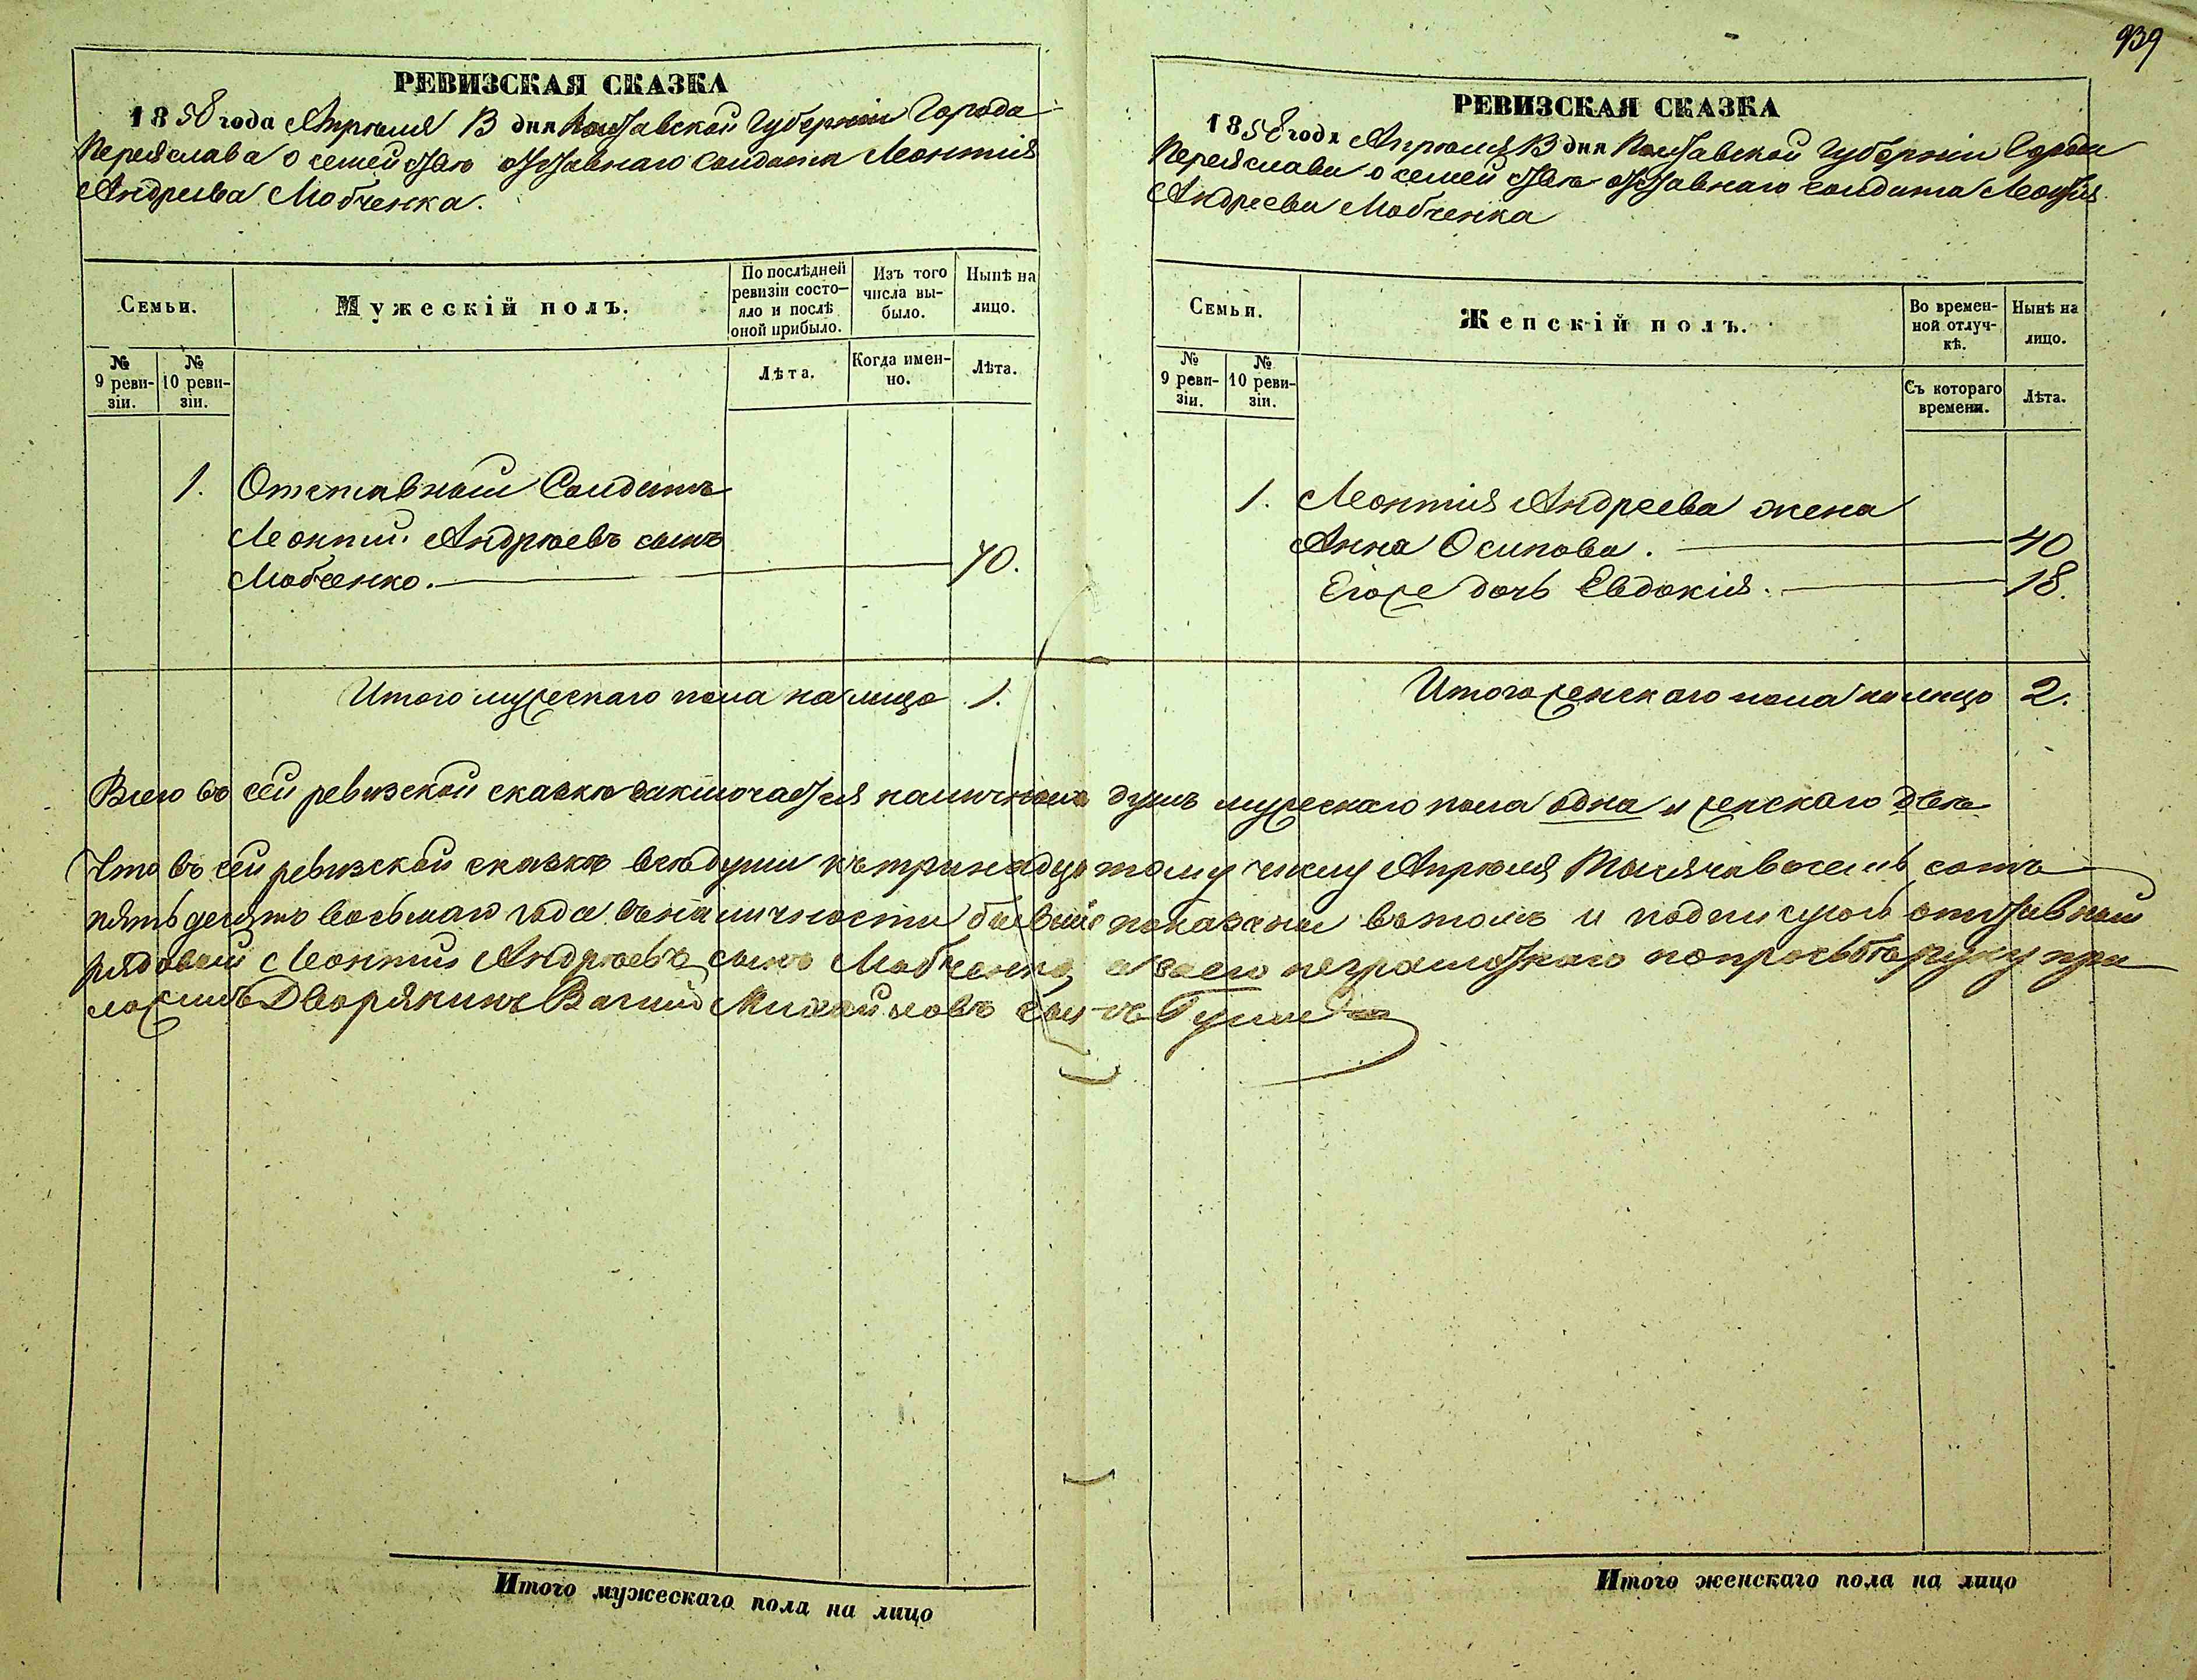 939
РЕВИЗСКАЯ СКАЗКА
1858 года Апрѣля 13 дня Полтавской Губерніи Города
Переяслава о семействѣ отставнаго солдата Леонтія
Андреева Мовченка.
Семьи.
Мужескій полъ.
По послѣдней ревизіи состо-
яло и послѣ оной прибыло.
Изъ того числа вы-
было.
Нынѣ на лицо.
№ 9 реви-
зіи.
№ 10 реви-
зіи.
Лѣта.
Когда имен-
но.
Лѣта.
1. Отставный Солдатъ
Леонтий Андрѣевъ сынъ
Мовченко. 70.
Итого мужескаго пола на лицо 1.
РЕВИЗСКАЯ СКАЗКА
1858 года Апрѣля 13 дня Полтавской Губерніи Города
Переяслава о семействѣ отставнаго солдата Леонтія
Андреева Мовченка
Семьи.
Женскій полъ.
Во времен-
ной отлуч-
кѣ.
Нынѣ на лицо.
№ 9 реви-
зіи.
№ 10 реви-
зіи.
Съ котораго времени.
Лѣта.
1. Леонтія Андреева жена
Анна Осипова. 40
Егоже дочь Евдокія. 18.
Итого женскаго пола на лицо 2.
Всего въ сей ревизской сказкѣ заключается наличныхъ душъ мужескаго пола одна и женскаго двѣ
Что въ сей ревизской сказкѣ всѣ души къ тринадцатому числу Апрѣля Тысяча восемь сотъ
пятьдесятъ восьмаго года въ наличности бывшіе показаны въ томъ и подписуюсь отставный
рядовый Леонтий Андрѣевъ сынъ Мовченко, а за его неграмотнаго по просьбѣ руку при
ложилъ Дворянинъ Михайловъ сынъ
Итого мужескаго пола на лицо
Итого женскаго пола на лицо